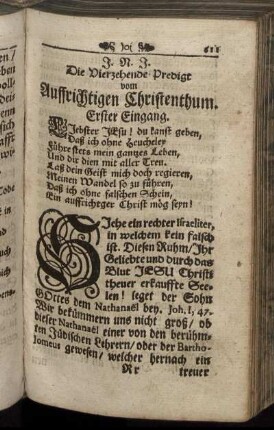 )o( 611
J. N. J.
Die Vierzehende Predigt
vom
Auffrichtigen Christenthum.
Erster Eingang.
LIebster JEsu! du kanst geben,
Daß ich ohne Heucheley
Führe stets mein gantzes Leben,
Und dir dien mit aller Treu.
Laß dein Geist mich doch regieren,
Meinen Wandel so zu führen,
Daß ich ohne falschen Schein,
Ein auffrichtger Christ mög seyn!
SIehe ein rechter Israeliter,
in welchem kein falsch
ist. Diesen Ruhm/ Ihr
Geliebte und durch das
Blut JESU Christi
theuer erkauffte See-
len! leget der Sohn
GOttes dem Nathanaël bey. Joh. I, 47.
Wir bekümmern uns nicht groß/ ob
dieser Nathanaël einer von den berühm-
ten Jüdischen Lehrern/ oder der Bartho-
lomæus gewesen/ welcher hernach ein
Rr treuer